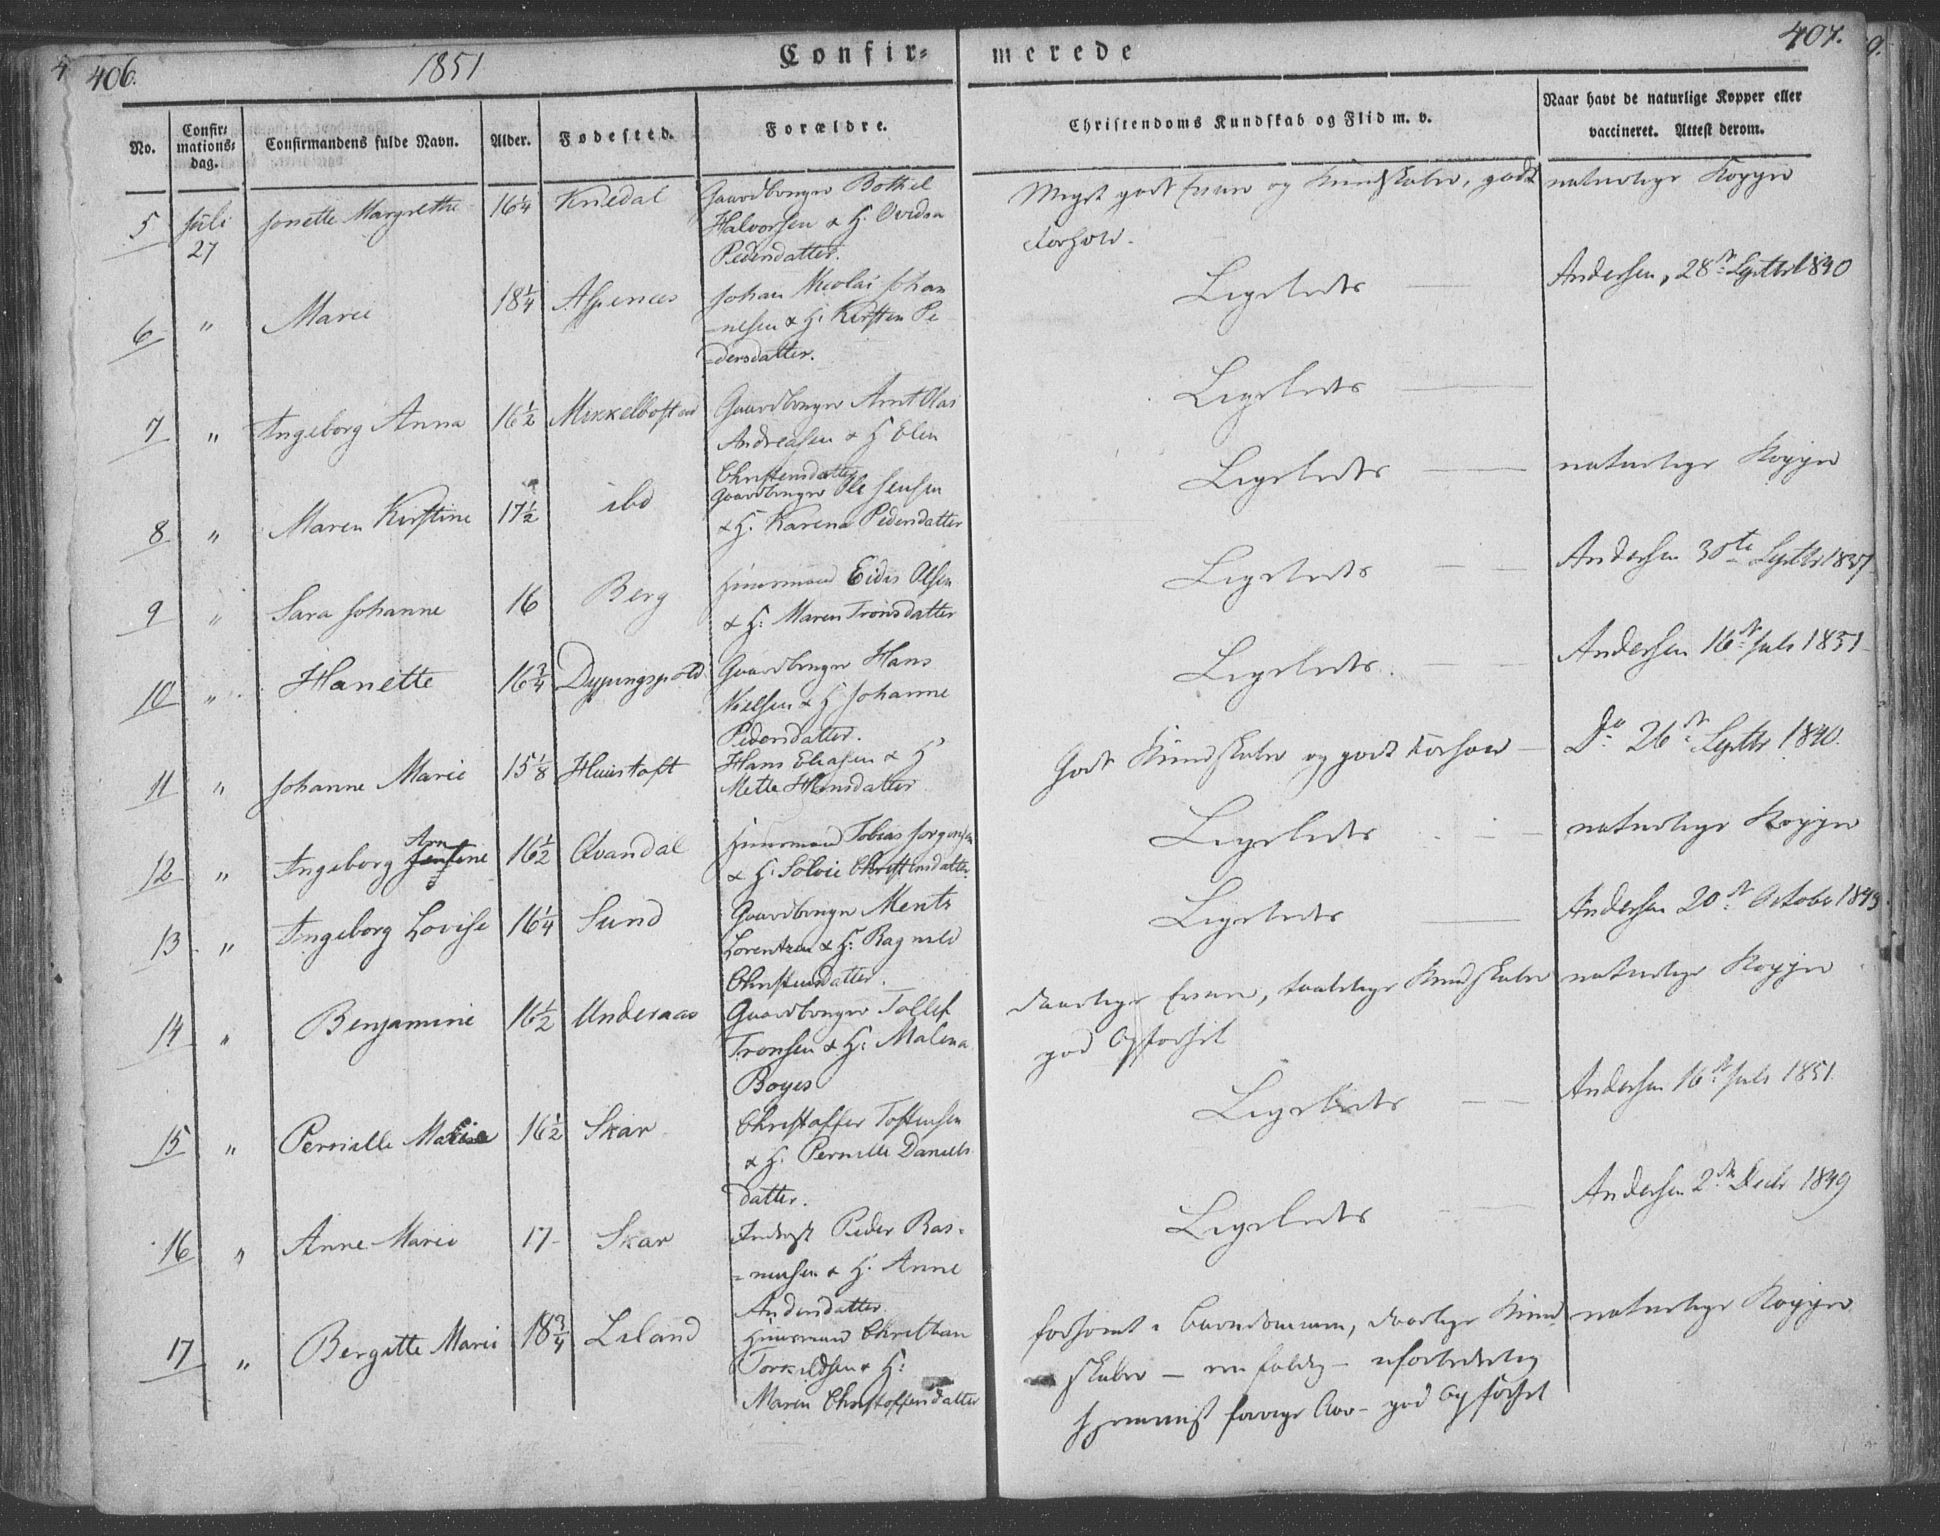 406.
1851
Confir-
merede
407.
No.
Confir-
mations-
dag.
Confirmandens fulde Navn.
Alder.
Fødested.
Forældre.
Christendoms Kundskab og Flid m. v.
Naar havt de naturlige Kopper eller
vaccineret. Attest derom.
5 Juli Jonette Margrethe 16¼ Gaardbruger Bothel
27 Halvorsen & H.
Pedersdatter.
Meget god Evne og Kundskaber, godt naturlige Kopper
Forhold.
6 " Marie 18¼ Johan Nicolai Johan
-nesen & H. Kirsten Pe
-dersdatter.
Ligeledes Andersen, 28de Septbr 1840
7 " Ingeborg Anna 16½ Mikkelbosted Gaardbruger Arnt Olai
Andreasen & H. Elen
Christensdatter
Ligeledes
8 " Maren Kirstine 17½ ibd Gaardbruger Ole Jensen
& H. Karena Pedersdatter
Ligeledes naturlige Kopper
9 " Sara Johanne 16 Berg Huusmand Eidis Olsen
& H: Maren Tronsdatter
Ligeledes Andersen 30te Septbr 1837
10 " Hanette 16¾ Gaardbruger Hans
Nielsen & H. Johanne
Pedersdatter.
Ligeledes. Andersen 16de Juli 1851
11 " Johanne Marie 15⅛ Hans Eliasen & H.
Mette Hansdatter
Gode Kundskaber og godt Forhold Do 26de Septbr 1840.
12 " Ingeborg 16½ Qvandal Huusmand Tobias Jørgensen
& H: Solvie Christensdatter
Ligeledes naturlige Kopper
13 " Ingeborg Lovise 16¼ Sund Gaardbruger Mentz
Lorentzen & H: Ragnild
Christensdatter.
Ligeledes Andersen 20de October 1843
14 " Benjamine 16½ Underaas Gaardbruger Tollef
Tronsen & H: Malena
Boyes
daarlige Evner, taalelige Kundskaber naturlige Kopper
god Opførsel
15 " Pernille 16½ Skar Christoffer Tostensen
& H. Pernille Daniels
datter.
Ligeledes Andersen 16de Juli 1851.
16 " Anne Marie 17 Skar Inderst Peder Ras-
-musen & H. Anne
Andersdatter
Ligeledes Andersen 2den Decbr 1849
17 " Bergitte Marie 18¾ Liland Huusmand Christian
Torkildsen & H:
Maren Christoffersdatter
forsømt i Barndommen, daarlige Kund naturlige Kopper
skaber — eenfoldig —
god Opførsel